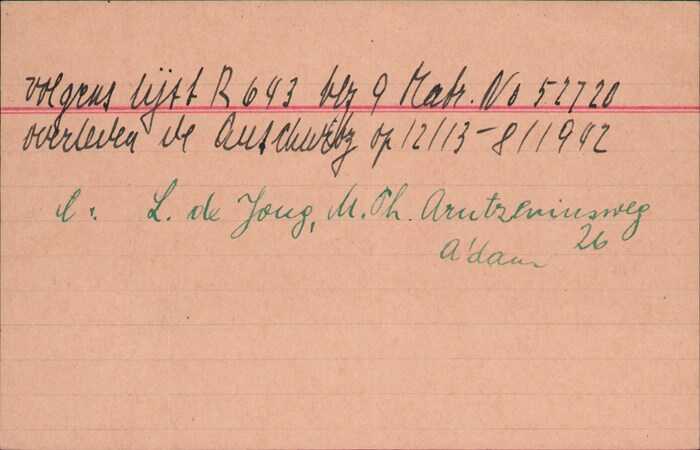 volgens lijst R 643 blz 9 Matr. No 52720
overleden te Auschwitz op 12/13-8/1942
C: L. de Jong, M. Th.
26
A'dam